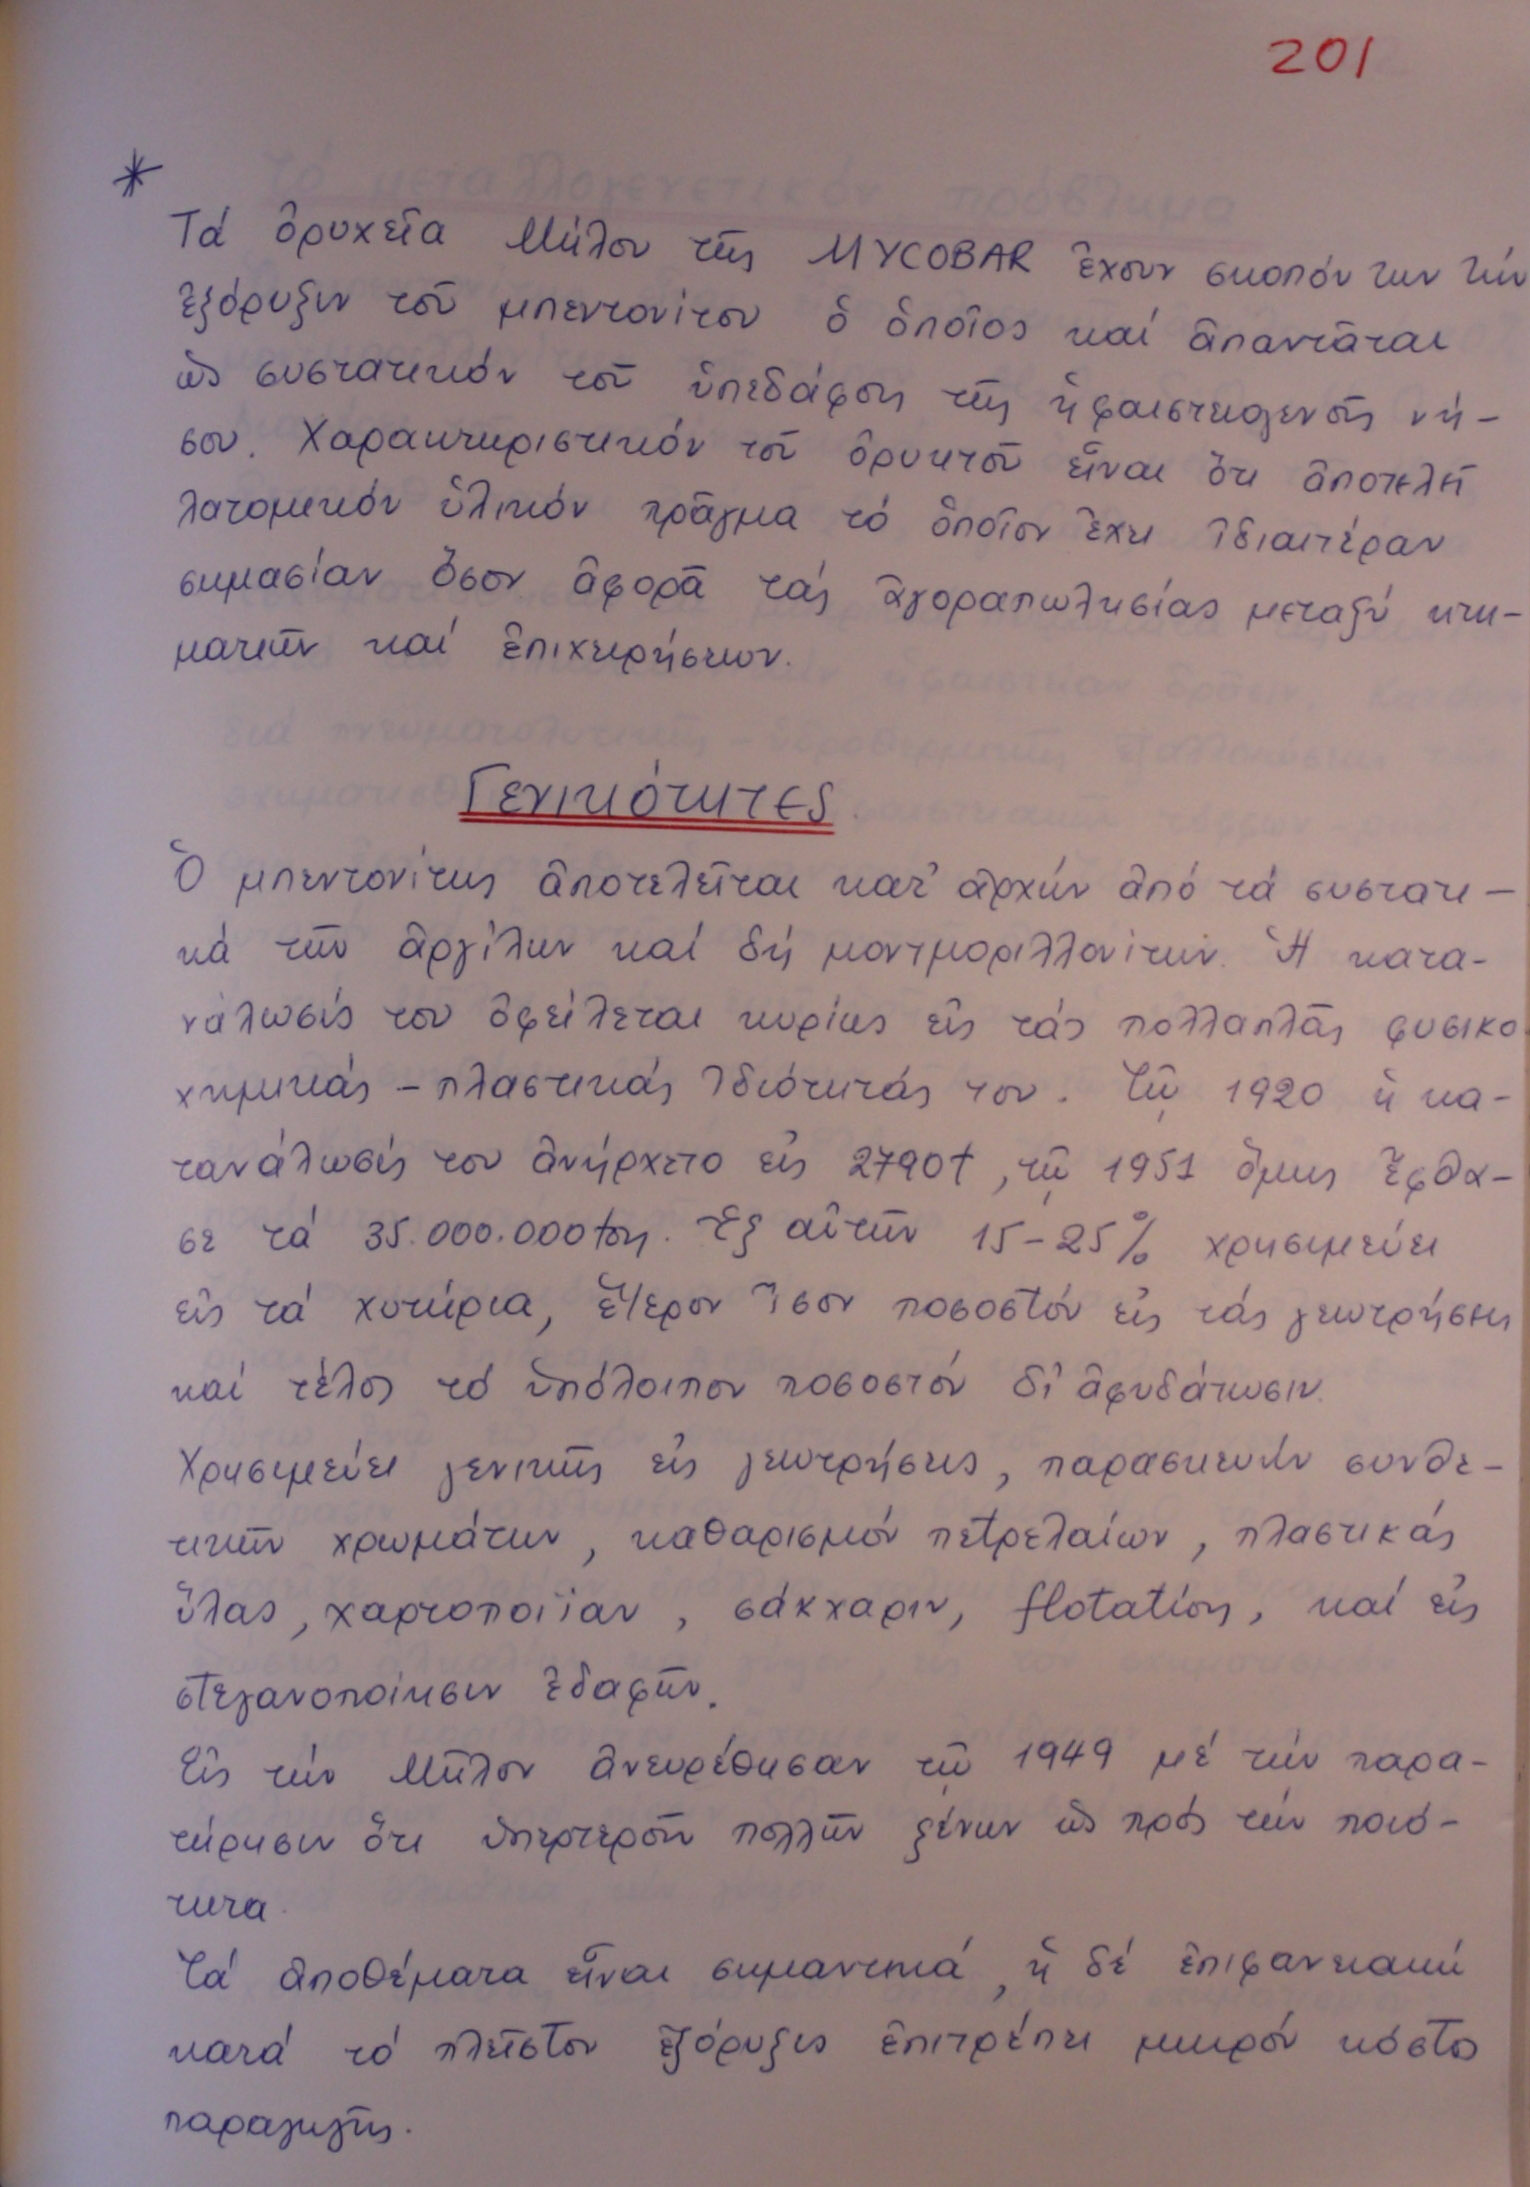 201
*
Τά ὀρυχεῖα Μήλου τῆς MYCOBAR ἔχουν σκοπόν των τήν
ἐξόρυξιν τοῦ μπεντονίτου ὁ ὁποῖος καί ἀπαντᾶται
ὡς συστατικόν τοῦ ὑπεδάφους τῆς ἡφαιστειογενοῦς νή-
σου. Χαρακτηριστικόν τοῦ ὀρυκτοῦ εἶναι ὅτι ἀποτελεῖ
λατομικόν ὑλικόν πρᾶγμα τό ὁποῖον ἔχει ἰδιαιτέραν
σημασίαν ὅσον ἀφορᾶ τάς ἀγοραπωλησίας μεταξύ κτη-
ματιῶν καί ἐπιχειρήσεων.
Γενικότητες
Ὁ μπεντονίτης ἀποτελεῖται κατ' ἀρχήν ἀπό τά συστατι-
κά τῶν ἀργίλων καί δή μοντμοριλλονιτῶν. Ἡ κατα-
νάλωσίς του ὀφείλεται κυρίως εἰς τάς πολλαπλᾶς φυσικο
χημικάς - πλαστικάς ἰδιότητάς του. Τῷ 1920 ἡ κα-
τανάλωσίς του ἀνήρχετο εἰς 2790t, τῷ 1951 ὅμως ἔφθα-
σε τά 35.000.000 τον. Ἐξ αὐτῶν 15-25% χρησιμεύει
εἰς τά χυτήρια, ἕτερον ἴσον ποσοστόν εἰς τάς γεωτρήσεις
καί τέλος τό ὑπόλοιπον ποσοστόν δι' ἀφυδάτωσιν.
Χρησιμεύει γενικῶς εἰς γεωτρήσεις, παρασκευήν συνθε-
τικῶν χρωμάτων, καθαρισμόν πετρελαίων, πλαστικάς
ὕλας, χαρτοποιΐαν, σάκχαριν, flotation, καί εἰς
στεγανοποίησιν ἐδαφῶν.
Εἰς τήν Μῆλον ἀνευρέθησαν τῷ 1949 μέ τήν παρα-
τήρησιν ὅτι ὑπερτεροῦν πολλῶν ξένων ὡς πρός τήν ποιό-
τητα.
Τά ἀποθέματα εἶναι σημαντικά, ἡ δέ ἐπιφανειακή
κατά τό πλεῖστον ἐξόρυξις ἐπιτρέπει μικρόν κόστος
παραγωγῆς.